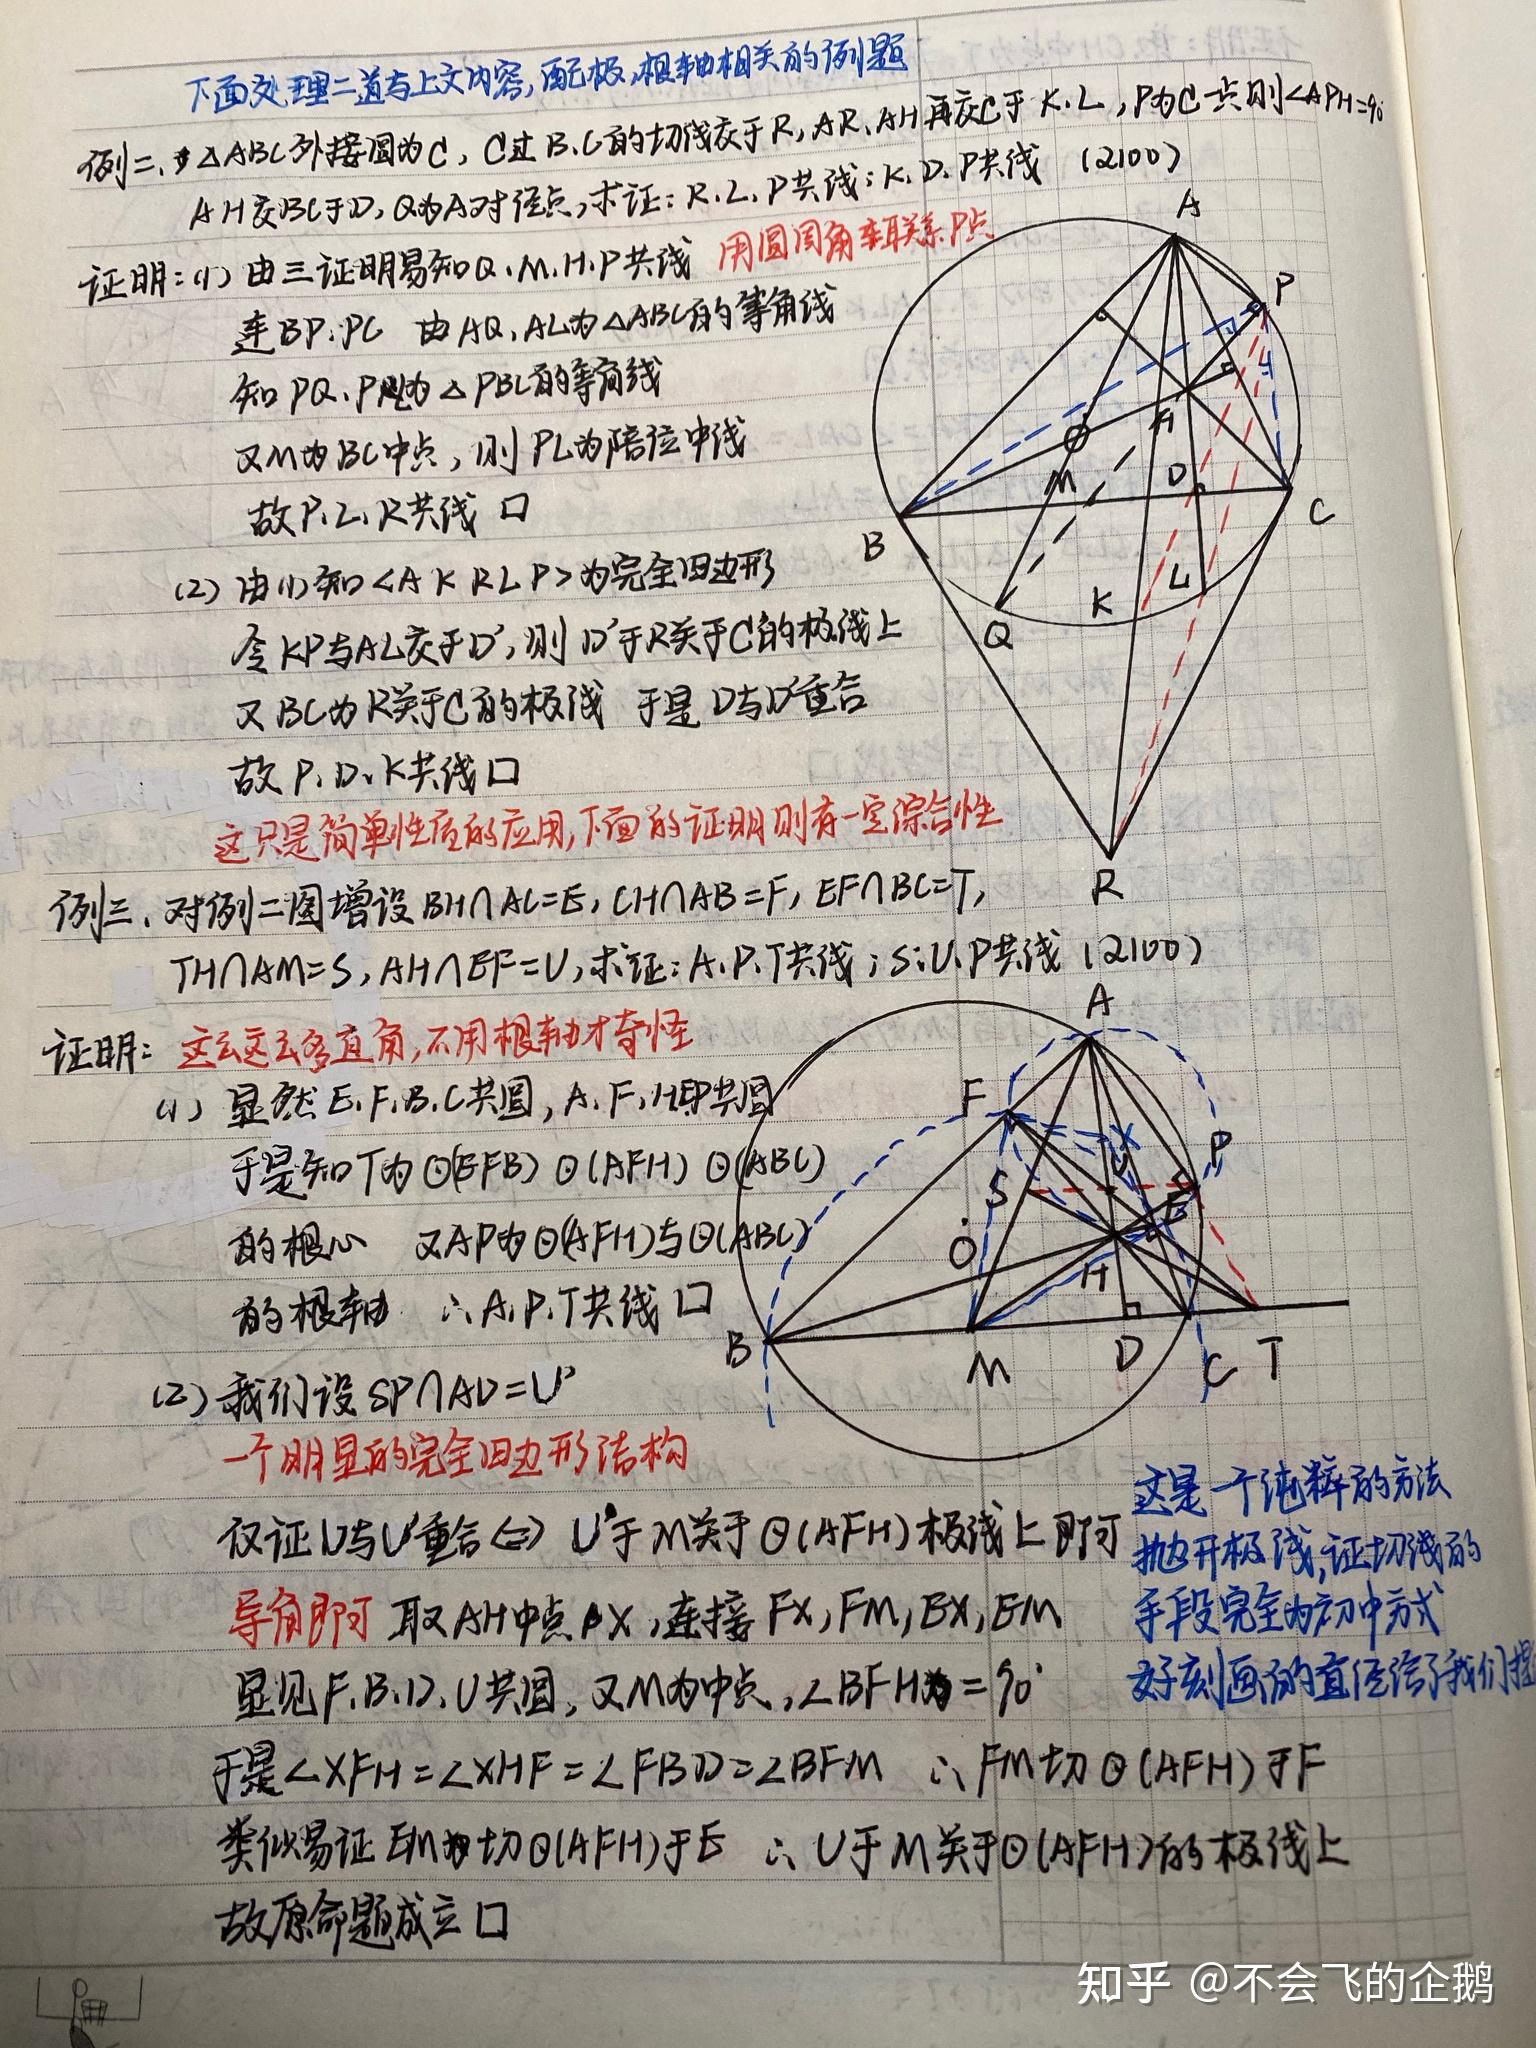 下面处理二道与上文内容,配极,根轴相关的例题
例二、△ABC外接圆为C,C过B.C的切线交于R,AR、AH再交C于K.L,P为C一点则∠APH=90°
AH交BC于D,Q为A对径点,求证:R.L.P共线;K.D.P共线 (2100)
证明:(1) 由三证明易知Q.M.H.P共线 用圆周角来联系P点
连BP.PC 由AQ、AL为△ABC的等角线
知PQ、PL为△PBC的等角线
又M为BC中点,则PL为陪位中线
故P.L.R共线 □
(2) 由(1)知<A K R L P>为完全四边形
令KP与AL交于D',则D'于R关于C的极线上
又BC为R关于C的极线 于是D与D'重合
故P.D.K共线□
这只是简单性质的应用,下面的证明则有一定综合性
例三、对例二图增设BH∩AC=E,CH∩AB=F,EF∩BC=T,
TH∩AM=S,AH∩EF=U,求证:A.P.T共线;S.U.P共线 (2100)
证明:这么这么多直角,不用根轴才奇怪
(1) 显然E.F.B.C共圆,A.F.H.E.P共圆
于是知T为⊙(EFB) ⊙(AFH) ⊙(ABC)
的根心 又AP为⊙(AFH)与⊙(ABC)
的根轴 ∴A.P.T共线 □
(2) 我们设SP∩AD=U'
一个明显的完全四边形结构
仅证U与U'重合⇔U'于M关于⊙(AFH)极线上即可
导角即可 取AH中点X,连接FX,FM,EX,EM
显见F.B.D.U共圆,又M为中点,∠BFH=90°
于是∠XFH=∠XHF=∠FBD=∠BFM ∴FM切⊙(AFH)于F
类似易证EM切⊙(AFH)于E ∴U于M关于⊙(AFH)的极线上
故原命题成立□
这是一个纯粹的方法
抛开极线,证切线的
手段完全为初中方式
好刻画的直径给了我们
A
P
O
H
M
D
B
C
Q
K
L
R
A
F
X
P
U
S
E
O
H
B
M
D
C
T
知乎 @不会飞的企鹅